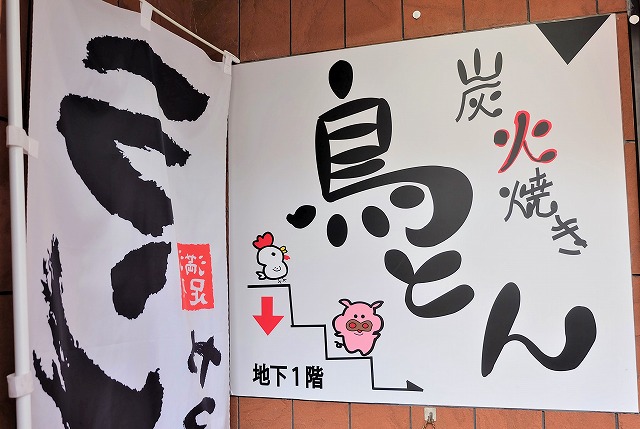 炭火焼き
鳥とん
地下1階
満足